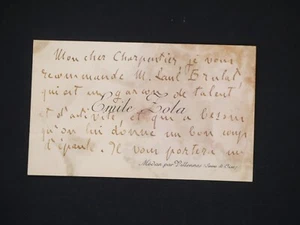 Mon cher Charpentier, je vous
recommande M. Paul Brulat
qui est un garçon de talent
Emile Zola
et d'activité, et qui a besoin
qu'on lui donne un bon coup
d'épaule. Je vous portera
Médan par Villennes